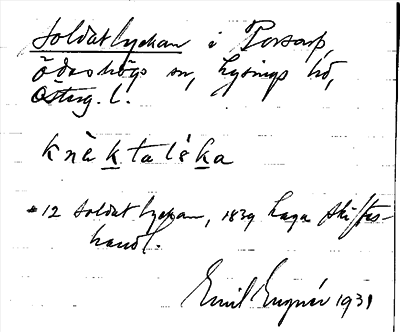 Soldatlyckan i Porsarp,
Ödeshögs sn, Lysings hd,
Österg. l.
knèktaléka
*12 Soldatlyckan, 1839 Laga skiftes-
handl.
Emil Engnér 1931